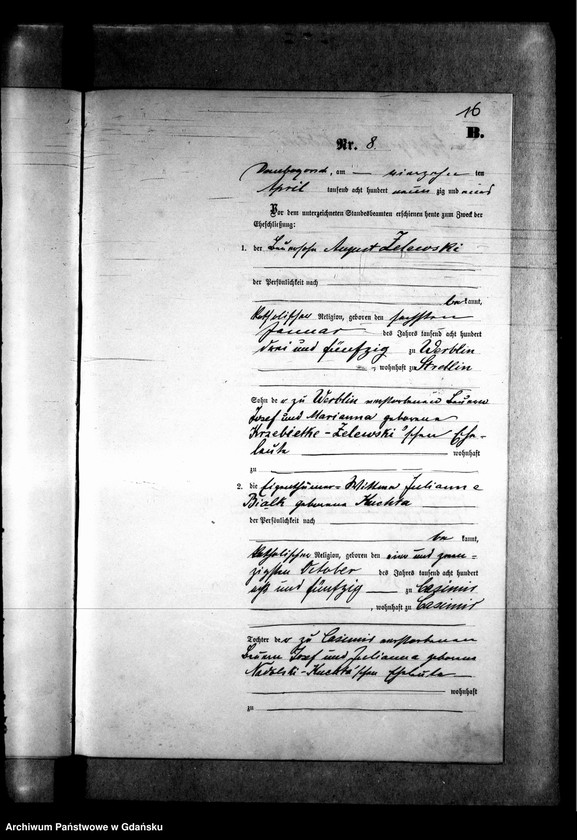 16
B.
Nr. 8.
Dombogorsch, am — vierzehn ten
April tausend acht hundert neun zig und eins
Vor dem unterzeichneten Standesbeamten erschienen heute zum Zweck der
Eheschließung:
1. der Bauersohn August Zelewski
der Persönlichkeit nach
be kannt,
katholischer Religion, geboren den sechsten
Januar des Jahres tausend acht hundert
drei und fünfzig zu Werblin
, wohnhaft zu Strellin
Sohn der zu Werblin verstorbenen Bauern
Josef und Marianna geborene
Krzebietke-Zelewski'schen Ehe-
leute wohnhaft
zu
2. die Eigenthümer-Wittwe Julianna
Bialk geborene Kuchta
der Persönlichkeit nach
be kannt,
katholischer Religion, geboren den ein und zwan-
zigsten October des Jahres tausend acht hundert
und fünfzig — zu Casimir
, wohnhaft zu Casimir
Tochter der zu Casimir verstorbenen
Bauern Josef und Julianna geborene
Nadolski-Kuchta'schen Eheleute
wohnhaft
zu
Archiwum Państwowe w Gdańsku